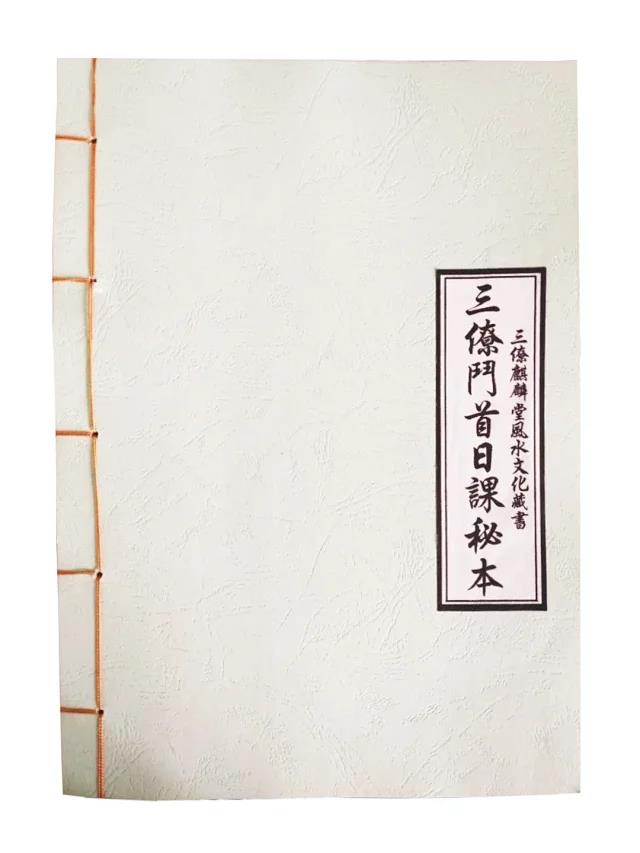 三僚麒麟堂風水文化藏書
三僚鬥首日課秘本